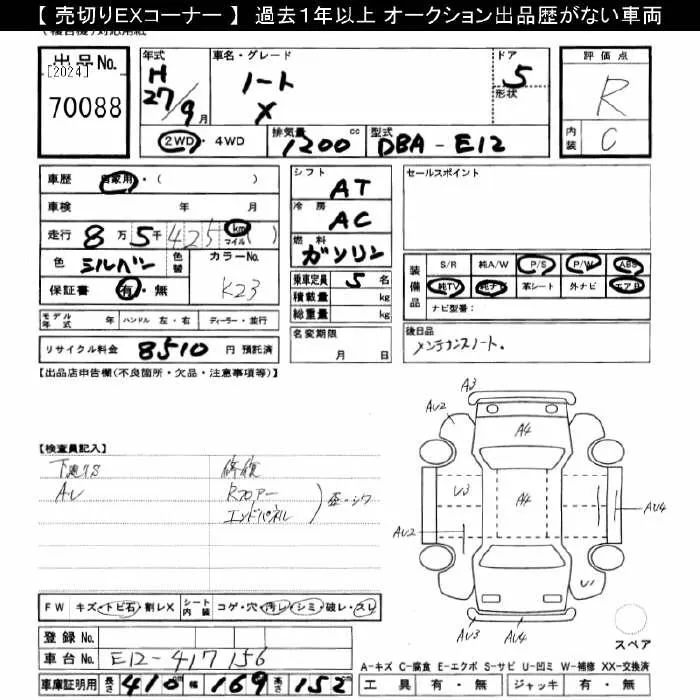 【 売切りEXコーナー 】 過去１年以上 オークション出品歴がない車両
出品No.
[2024]
70088
年式
H
27/9月
車名・グレード
ノート
X
ドア
5
形状
評価点
R
内装
C
2WD・4WD
排気量
1200cc
型式
DBA-E12
車歴 自家用・( )
車検 年 月
走行 8万5千425 km マイル ( )
色 シルバー 色替 カラーNo.
保証書 有・無 K23
モデル年式 年 ハンドル 左・右 ディーラー・並行
リサイクル料金 8510 円 預託済
シフト
AT
冷房
AC
燃料
ガソリン
乗車定員 5 名
積載量 kg
総重量 kg
名変期限
月 日
セールスポイント
装備品
S/R 純A/W P/S P/W ABS
純TV 純ナビ 革シート 外ナビ エアB
ナビ型番：
後日品
メンテナンスノート.
【出品店申告欄(不良箇所・欠品・注意事項等)】
【検査員記入】
下廻りS 修復
AU Rフロアー
エンドパネル
歪・シワ
A3
AU2
A4
U3
A4
AU4
AU2
U1
A3
AU4
スペア
FW キズ・トビ石・割レX シート内装 コゲ・穴・汚レ・シミ・破レ・スレ
登録No.
車台No. E12-417156
車庫証明用 長さ 410cm 幅 169cm 高さ 152cm
A-キズ C-腐食 E-エクボ S-サビ U-凹ミ W-補修 XX-交換済
工具 有・無 ジャッキ 有・無